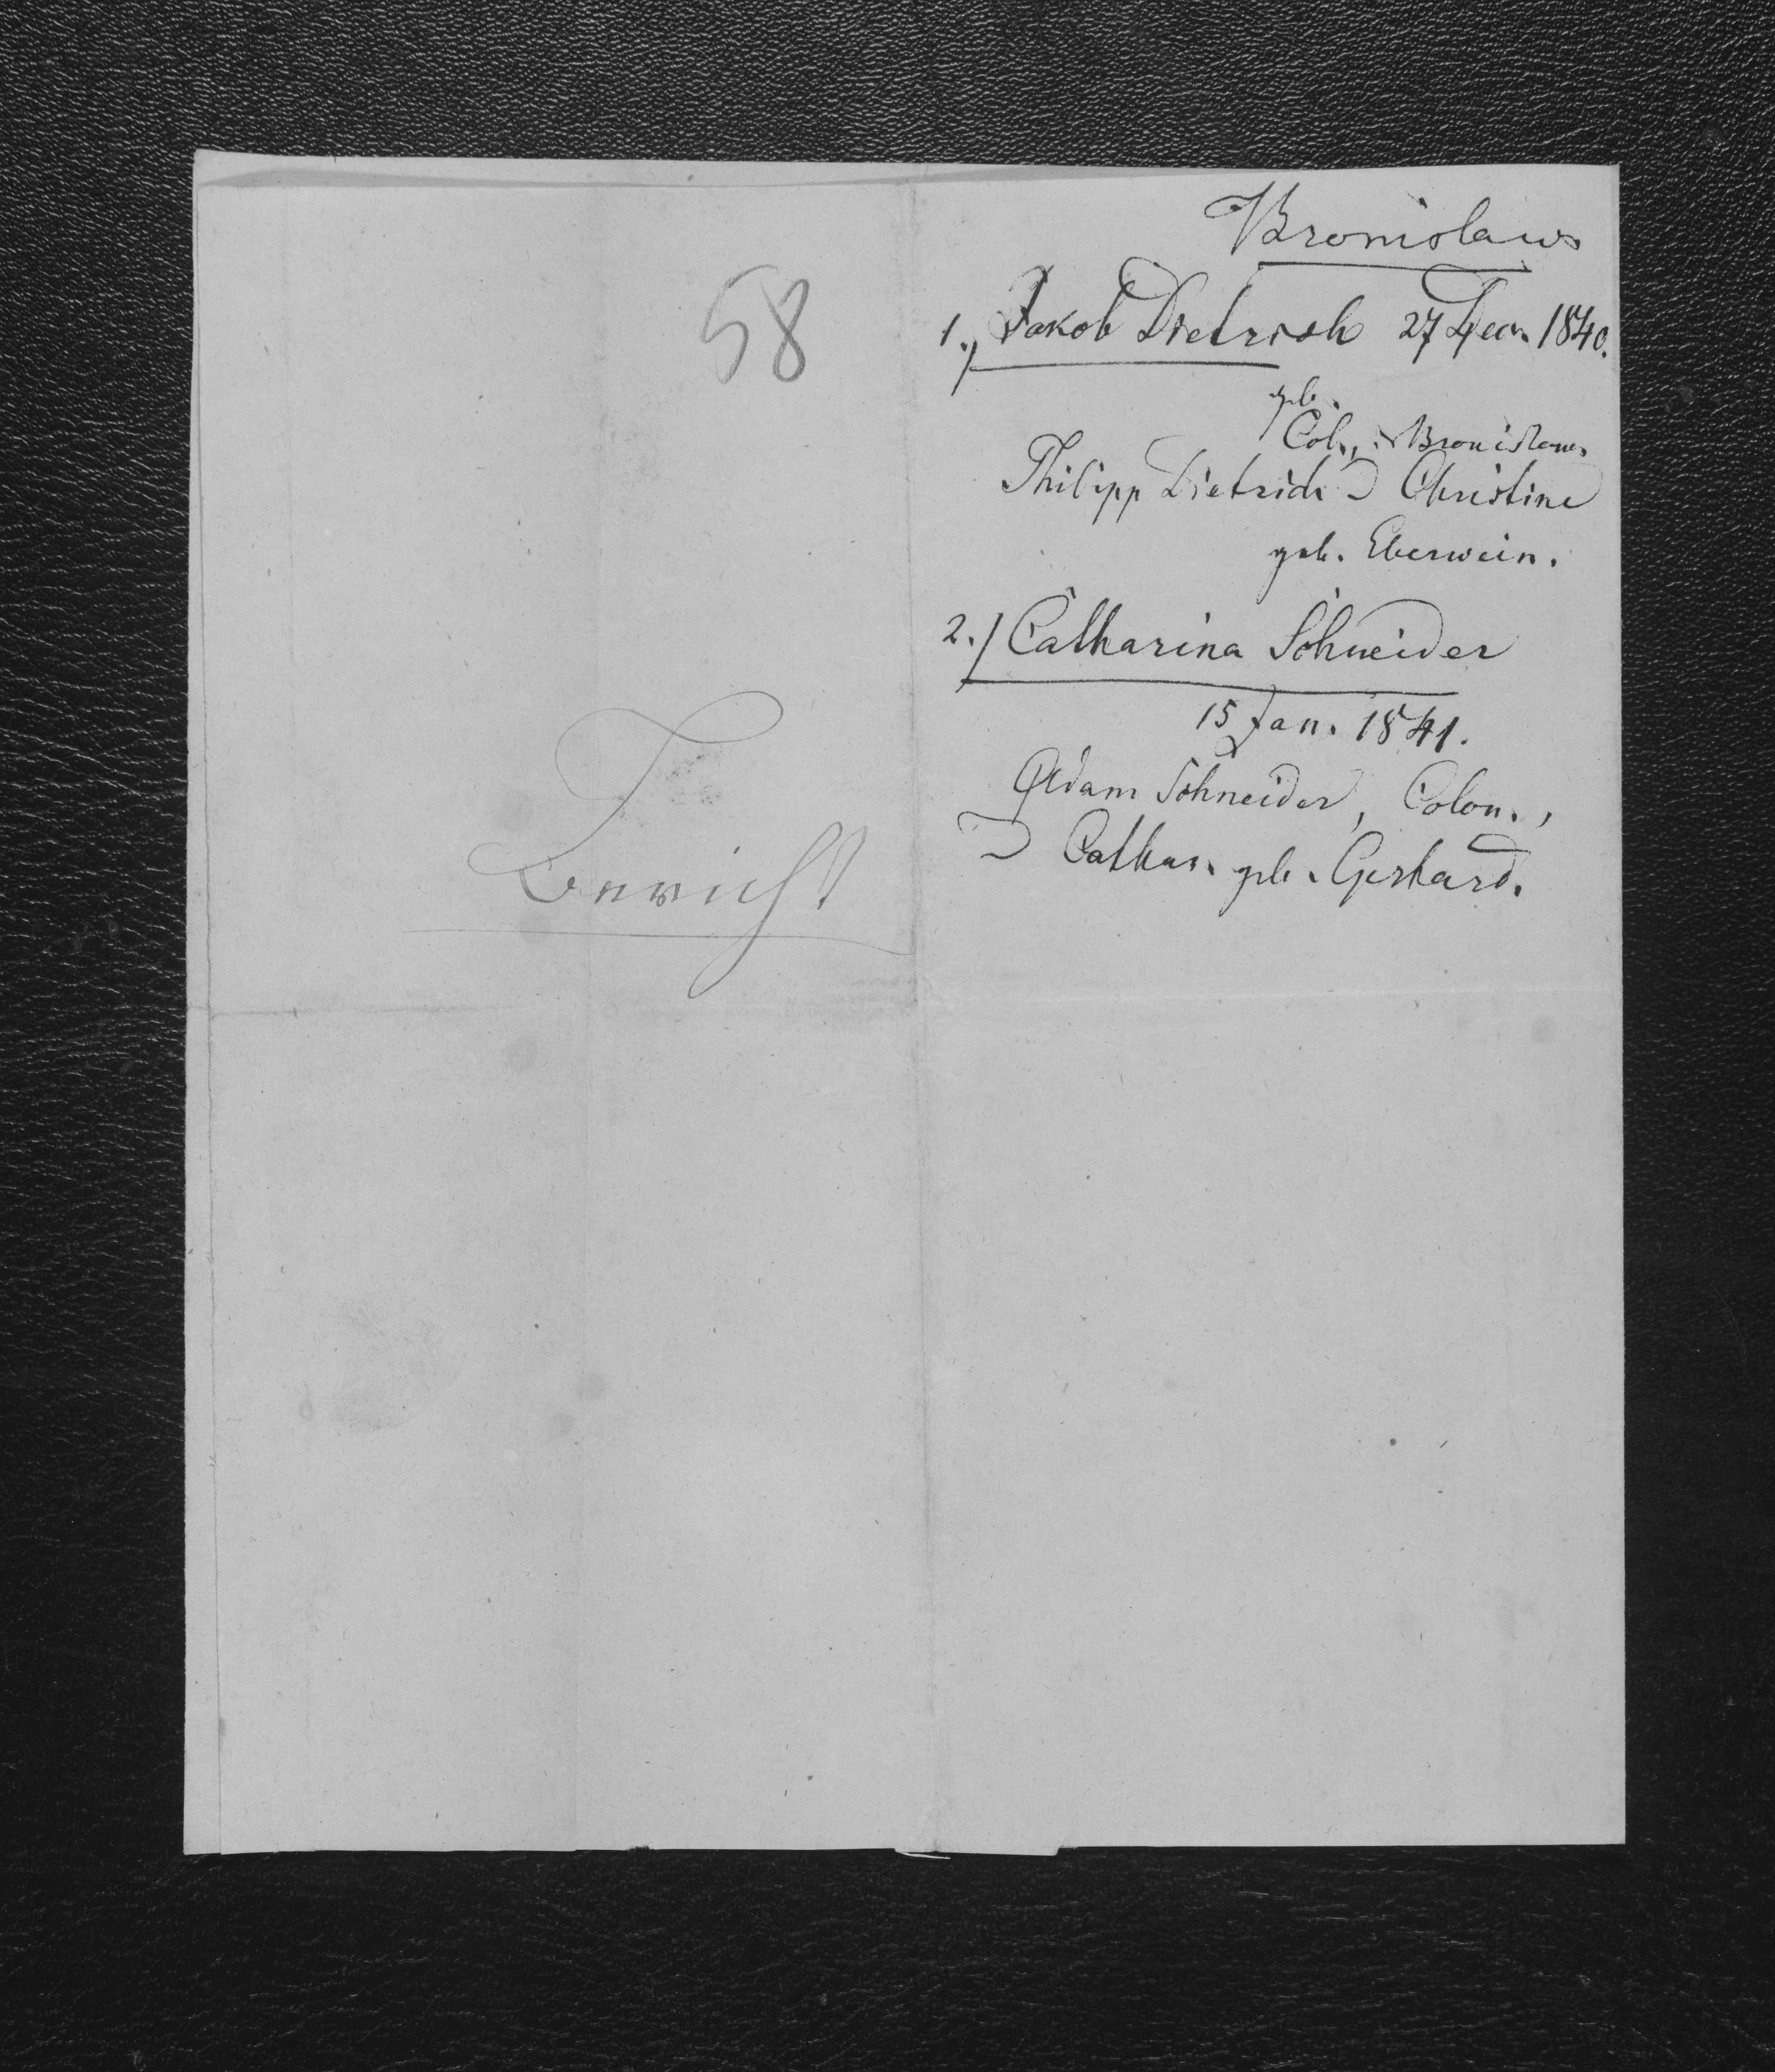 58
Bericht
Bronislaw
1.) Jakob Dietrich 27 Dec. 1840.
geb.
Col., Bronislaw.
Philipp Dietrich & Christine
geb. Eberwein.
2.) Catharina Schneider
15 Jan. 1841.
Adam Schneider, Colon.,
& Cathar. geb. Gerhard.